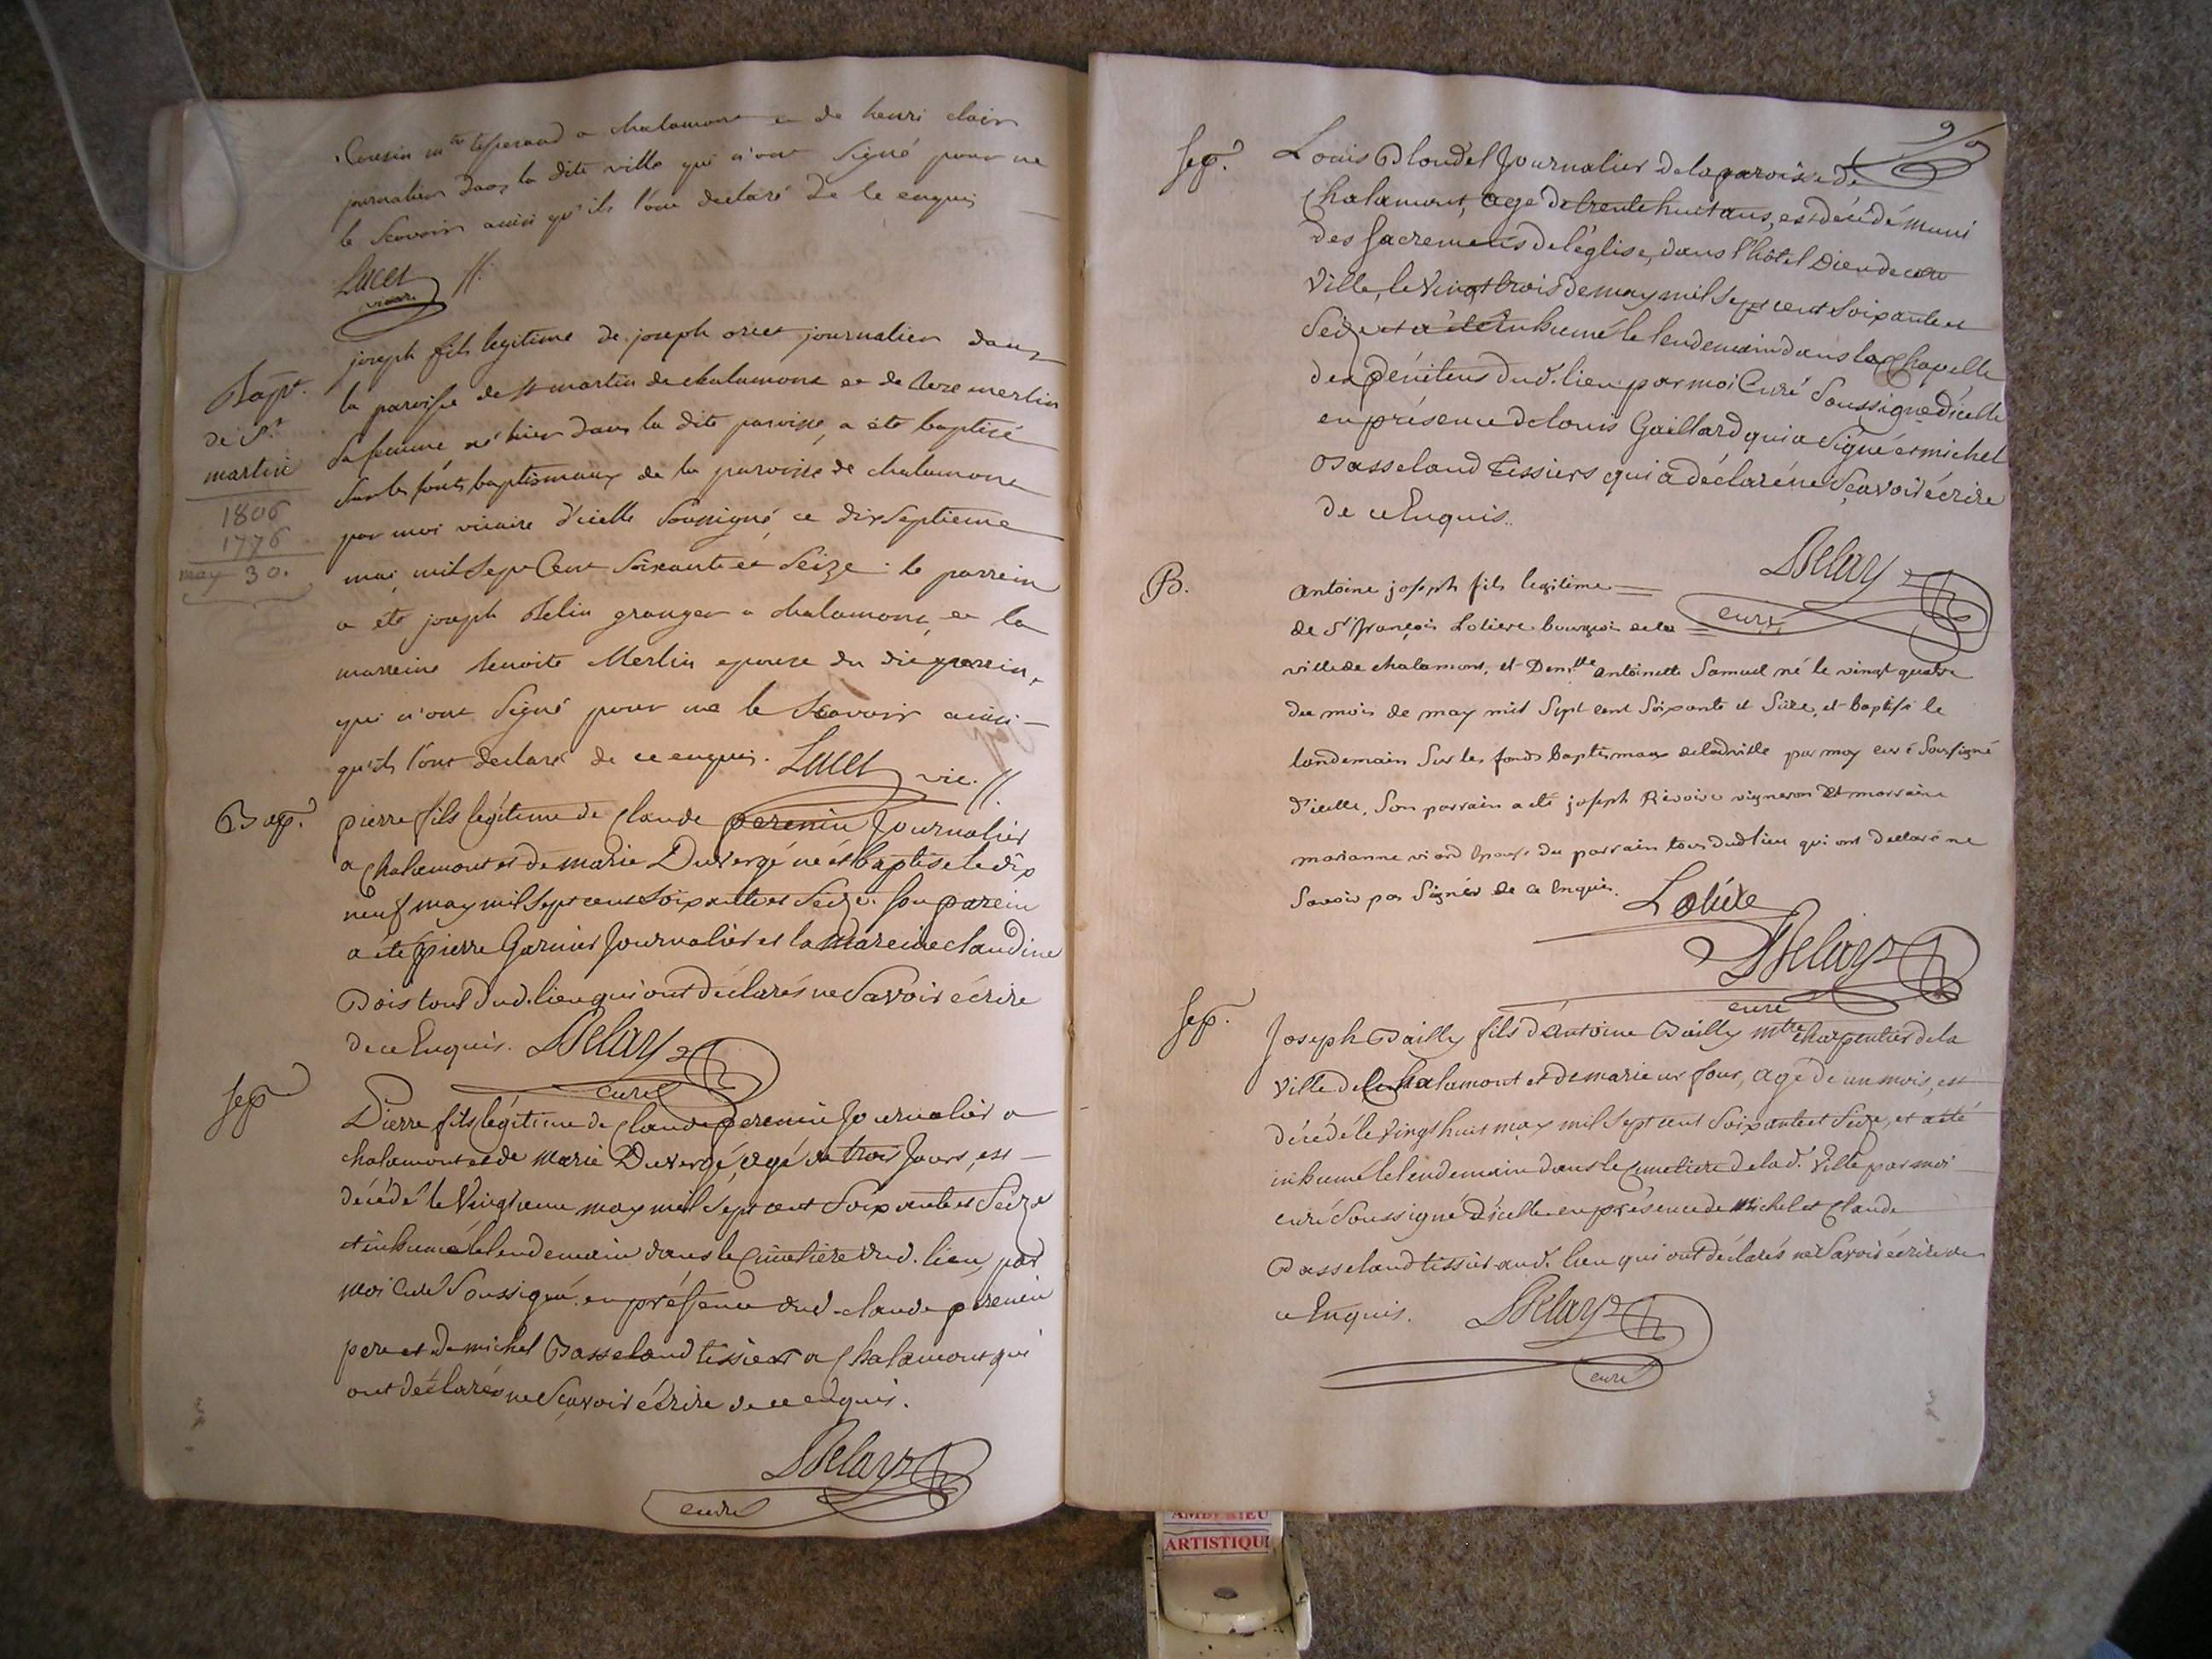 Cousin mtre tisserand a chalamont et de henri clair
journalier dans la dite ville qui n'ont signé pour ne
le scavoir ainsi qu'ils l'ont declaré de ce enquis
Lucet
vicaire
Bapt.
de St
martin
1806
1776
may 30.
joseph fils legitime de joseph journalier dans
la paroisse de st martin de chalamont et de merlin
sa femme né hier dans la dite paroisse, a été baptisé
sur les fonts baptismaux de la paroisse de chalamont
par moi vicaire d'icelle soussigné ce dix septieme
mai mil sept cent soixante et seize : le parrein
a été joseph granger a chalamont, et la
marreine benoite Merlin epouse du dit parrein,
qui n'ont signé pour ne le scavoir ainsi
qu'ils l'ont declaré de ce enquis. Lucet vic.
Bap.
pierre fils légitime de claude perenin Journalier
a chalamont et de marie Duvergé né et baptisé le dix
neuf may mil sept cent soixante et seize. son parein
a été pierre Garnier Journalier et la mareine claudine
Bois tout dud. lieu qui ont déclarés ne savoir écrire
de ce Enquis. Delay
curé
sep
Pierre fils légitime de claude perenin Journalier a
chalamont et de marie Duvergé agé de trois Jours, est
décédé le vingt may mil sept cent soixante et seize
et inhumé le lendemain dans le cimetiere dud. lieu, par
moi curé soussigné en présence dud. claude perenin
pere et de michel Basseland tissier a chalamont qui
ont déclarés ne sçavoir écrire de ce enquis.
Delay
curé
9
sep.
Louis Blondel Journalier de la paroisse de
chalamont, agé de trente huit ans, est décédé muni
des sacremens de l'église, dans l'hôtel Dieu de cette
ville, le vingt trois de may mil sept cent soixante et
seize et a été inhumé le lendemain dans la chapelle
des pénitens dud. lieu par moi Curé soussigné d'icelle
en présence de louis Gaillard qui a signé et michel
Basseland tissiers qui a déclaré ne sçavoir écrire
de ce Enquis.
Delay
curé
B.
antoine joseph fils legitime
de Sr françois Loliere bourgeois de la
ville de chalamont, et Demlle antoinette Samuel né le vingt quatre
du mois de may mil sept cent soixante et seize, et baptisé le
landemain sur les fonds baptismaux de lad ville par moy curé soussigné
d'icelle, son parrain a eté joseph Revoire vigneron et marraine
marianne viard épouse du parrain tous dud lieu qui ont declaré ne
savoir pas signer de ce enquis. Loliere
Delay
curé
sep.
Joseph Bailly fils d'antoine Bailly mtre charpentier de la
ville de chalamont et de marie four, agé de un mois, est
décédé le vingt huit may mil sept cent soixante et seize, et a été
inhumé le lendemain dans le cimetiere de lad. ville par moi
curé soussigné d'icelle en présence de michel et claude
Basseland tissier dud. lieu qui ont déclarés ne savoir écrire de
ce Enquis. Delay
curé
AMBERIEU
ARTISTIQU